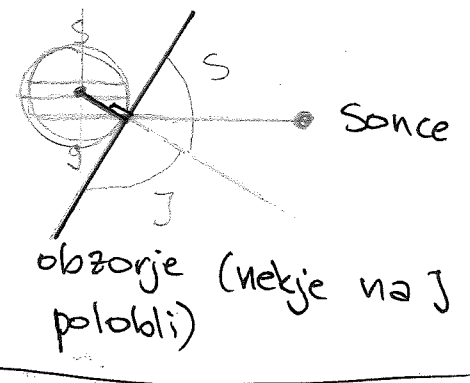 S
S
Sonce
J
J
obzorje (nekje na J
polobli)